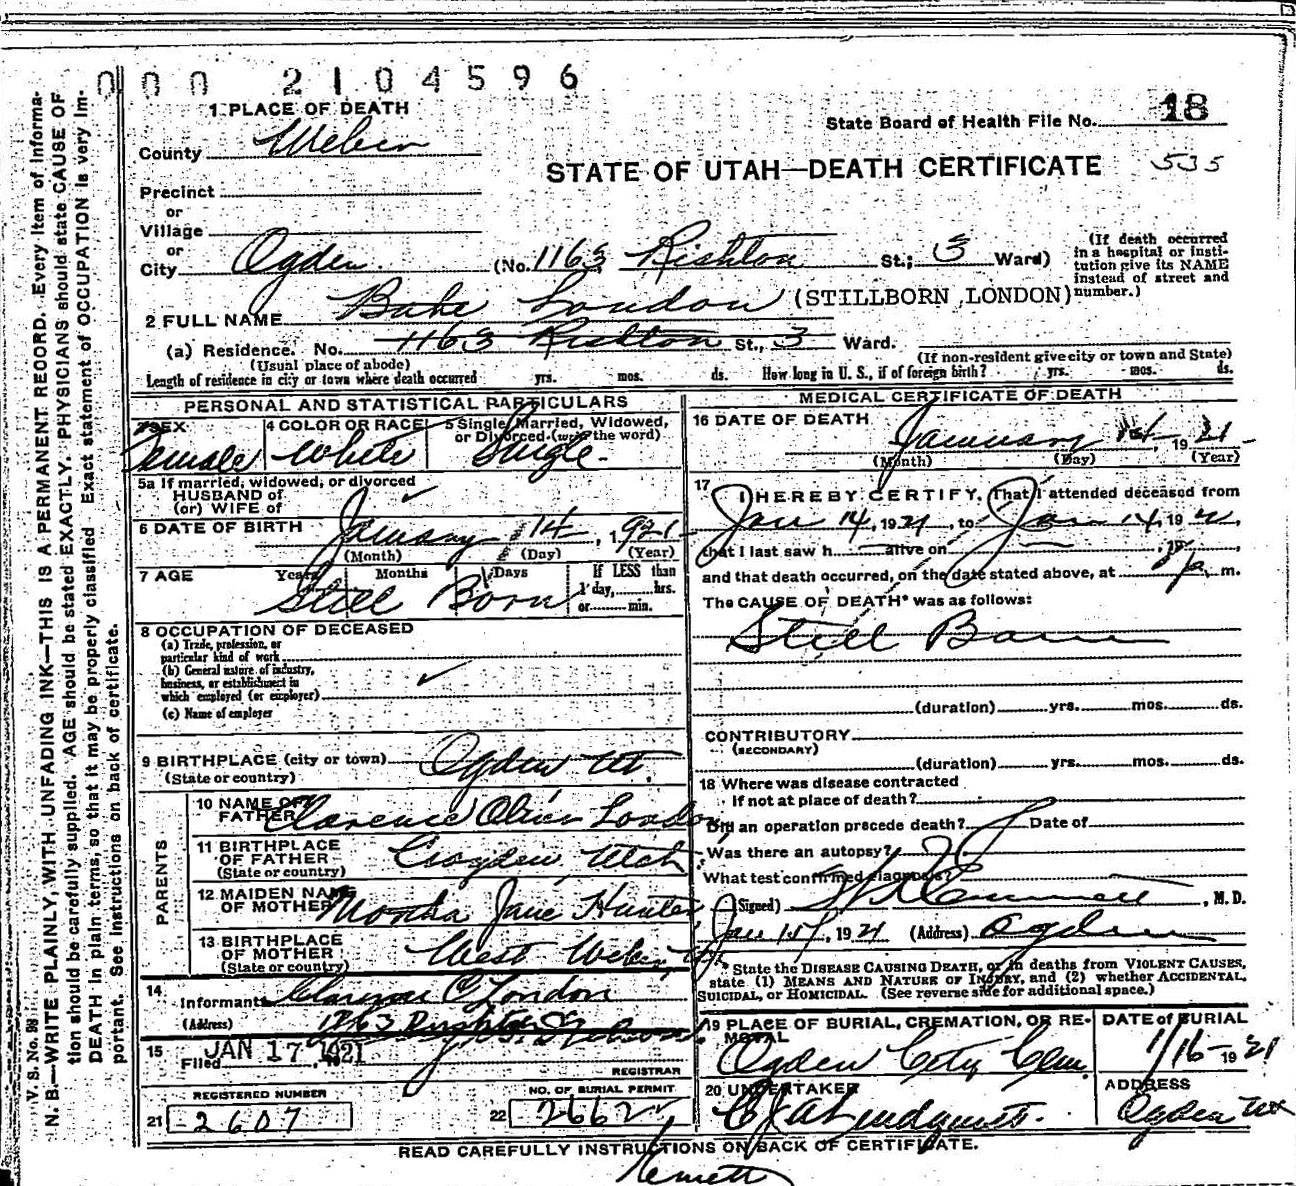 000 2104596
1 PLACE OF DEATH
State Board of Health File No. 18
County Weber
STATE OF UTAH—DEATH CERTIFICATE 535
Precinct
or
Village
or
City Ogden (No. 1163 Rishton St.; 3 Ward)
(If death occurred in a hospital or institution give its NAME instead of street and number.)
2 FULL NAME Babe London (STILLBORN LONDON)
(a) Residence. No. 1163 Rishton St., 3 Ward.
(Usual place of abode) (If non-resident give city or town and State)
Length of residence in city or town where death occurred yrs. mos. ds. How long in U. S., if of foreign birth? yrs. mos. ds.
PERSONAL AND STATISTICAL PARTICULARS
3 SEX Female
4 COLOR OR RACE White
5 Single, Married, Widowed, or Divorced. (write the word) Single.
5a If married, widowed, or divorced
HUSBAND of
(or) WIFE of
6 DATE OF BIRTH January 14, 1921
(Month) (Day) (Year)
7 AGE Years Months Days If LESS than 1 day, hrs. or min.
Still Born
8 OCCUPATION OF DECEASED
(a) Trade, profession, or
particular kind of work
(b) General nature of industry,
business, or establishment in
which employed (or employer)
(c) Name of employer
9 BIRTHPLACE (city or town) Ogden Ut.
(State or country)
PARENTS
10 NAME OF FATHER Clarence Oliver London
11 BIRTHPLACE OF FATHER Croyden, Utah
(State or country)
12 MAIDEN NAME OF MOTHER Jane Hunter
13 BIRTHPLACE OF MOTHER West Weber
(State or country)
14 Informant Clarence O London
(Address)
15 Filed JAN 17, 1921
REGISTRAR
REGISTERED NUMBER
21 2607
NO. OF BURIAL PERMIT
22 2662
MEDICAL CERTIFICATE OF DEATH
16 DATE OF DEATH January 14, 1921
(Month) (Day) (Year)
17 I HEREBY CERTIFY, That I attended deceased from
Jan 14, 1921, to Jan 14, 192
that I last saw h alive on
and that death occurred, on the date stated above, at m.
The CAUSE OF DEATH* was as follows:
Still Born
(duration) yrs. mos. ds.
CONTRIBUTORY
(SECONDARY)
(duration) yrs. mos. ds.
18 Where was disease contracted
If not at place of death?
Did an operation precede death? Date of
Was there an autopsy?
What test confirmed diagnosis?
(Signed) , M. D.
Jan 15, 1921 (Address) Ogden
* State the DISEASE CAUSING DEATH, or in deaths from VIOLENT CAUSES,
state (1) MEANS AND NATURE OF INJURY, and (2) whether ACCIDENTAL,
SUICIDAL, or HOMICIDAL. (See reverse side for additional space.)
19 PLACE OF BURIAL, CREMATION, OR REMOVAL
Ogden City Cem.
DATE of BURIAL
1/16—1921
20 UNDERTAKER
ADDRESS
Ogden
READ CAREFULLY INSTRUCTIONS ON BACK OF CERTIFICATE.
V. S. No. 98
N. B.—WRITE PLAINLY, WITH UNFADING INK—THIS IS A PERMANENT RECORD. Every item of information
should be carefully supplied. AGE should be stated EXACTLY. PHYSICIANS should state CAUSE OF
DEATH in plain terms, so that it may be properly classified. Exact statement of OCCUPATION is very important.
See instructions on back of certificate.